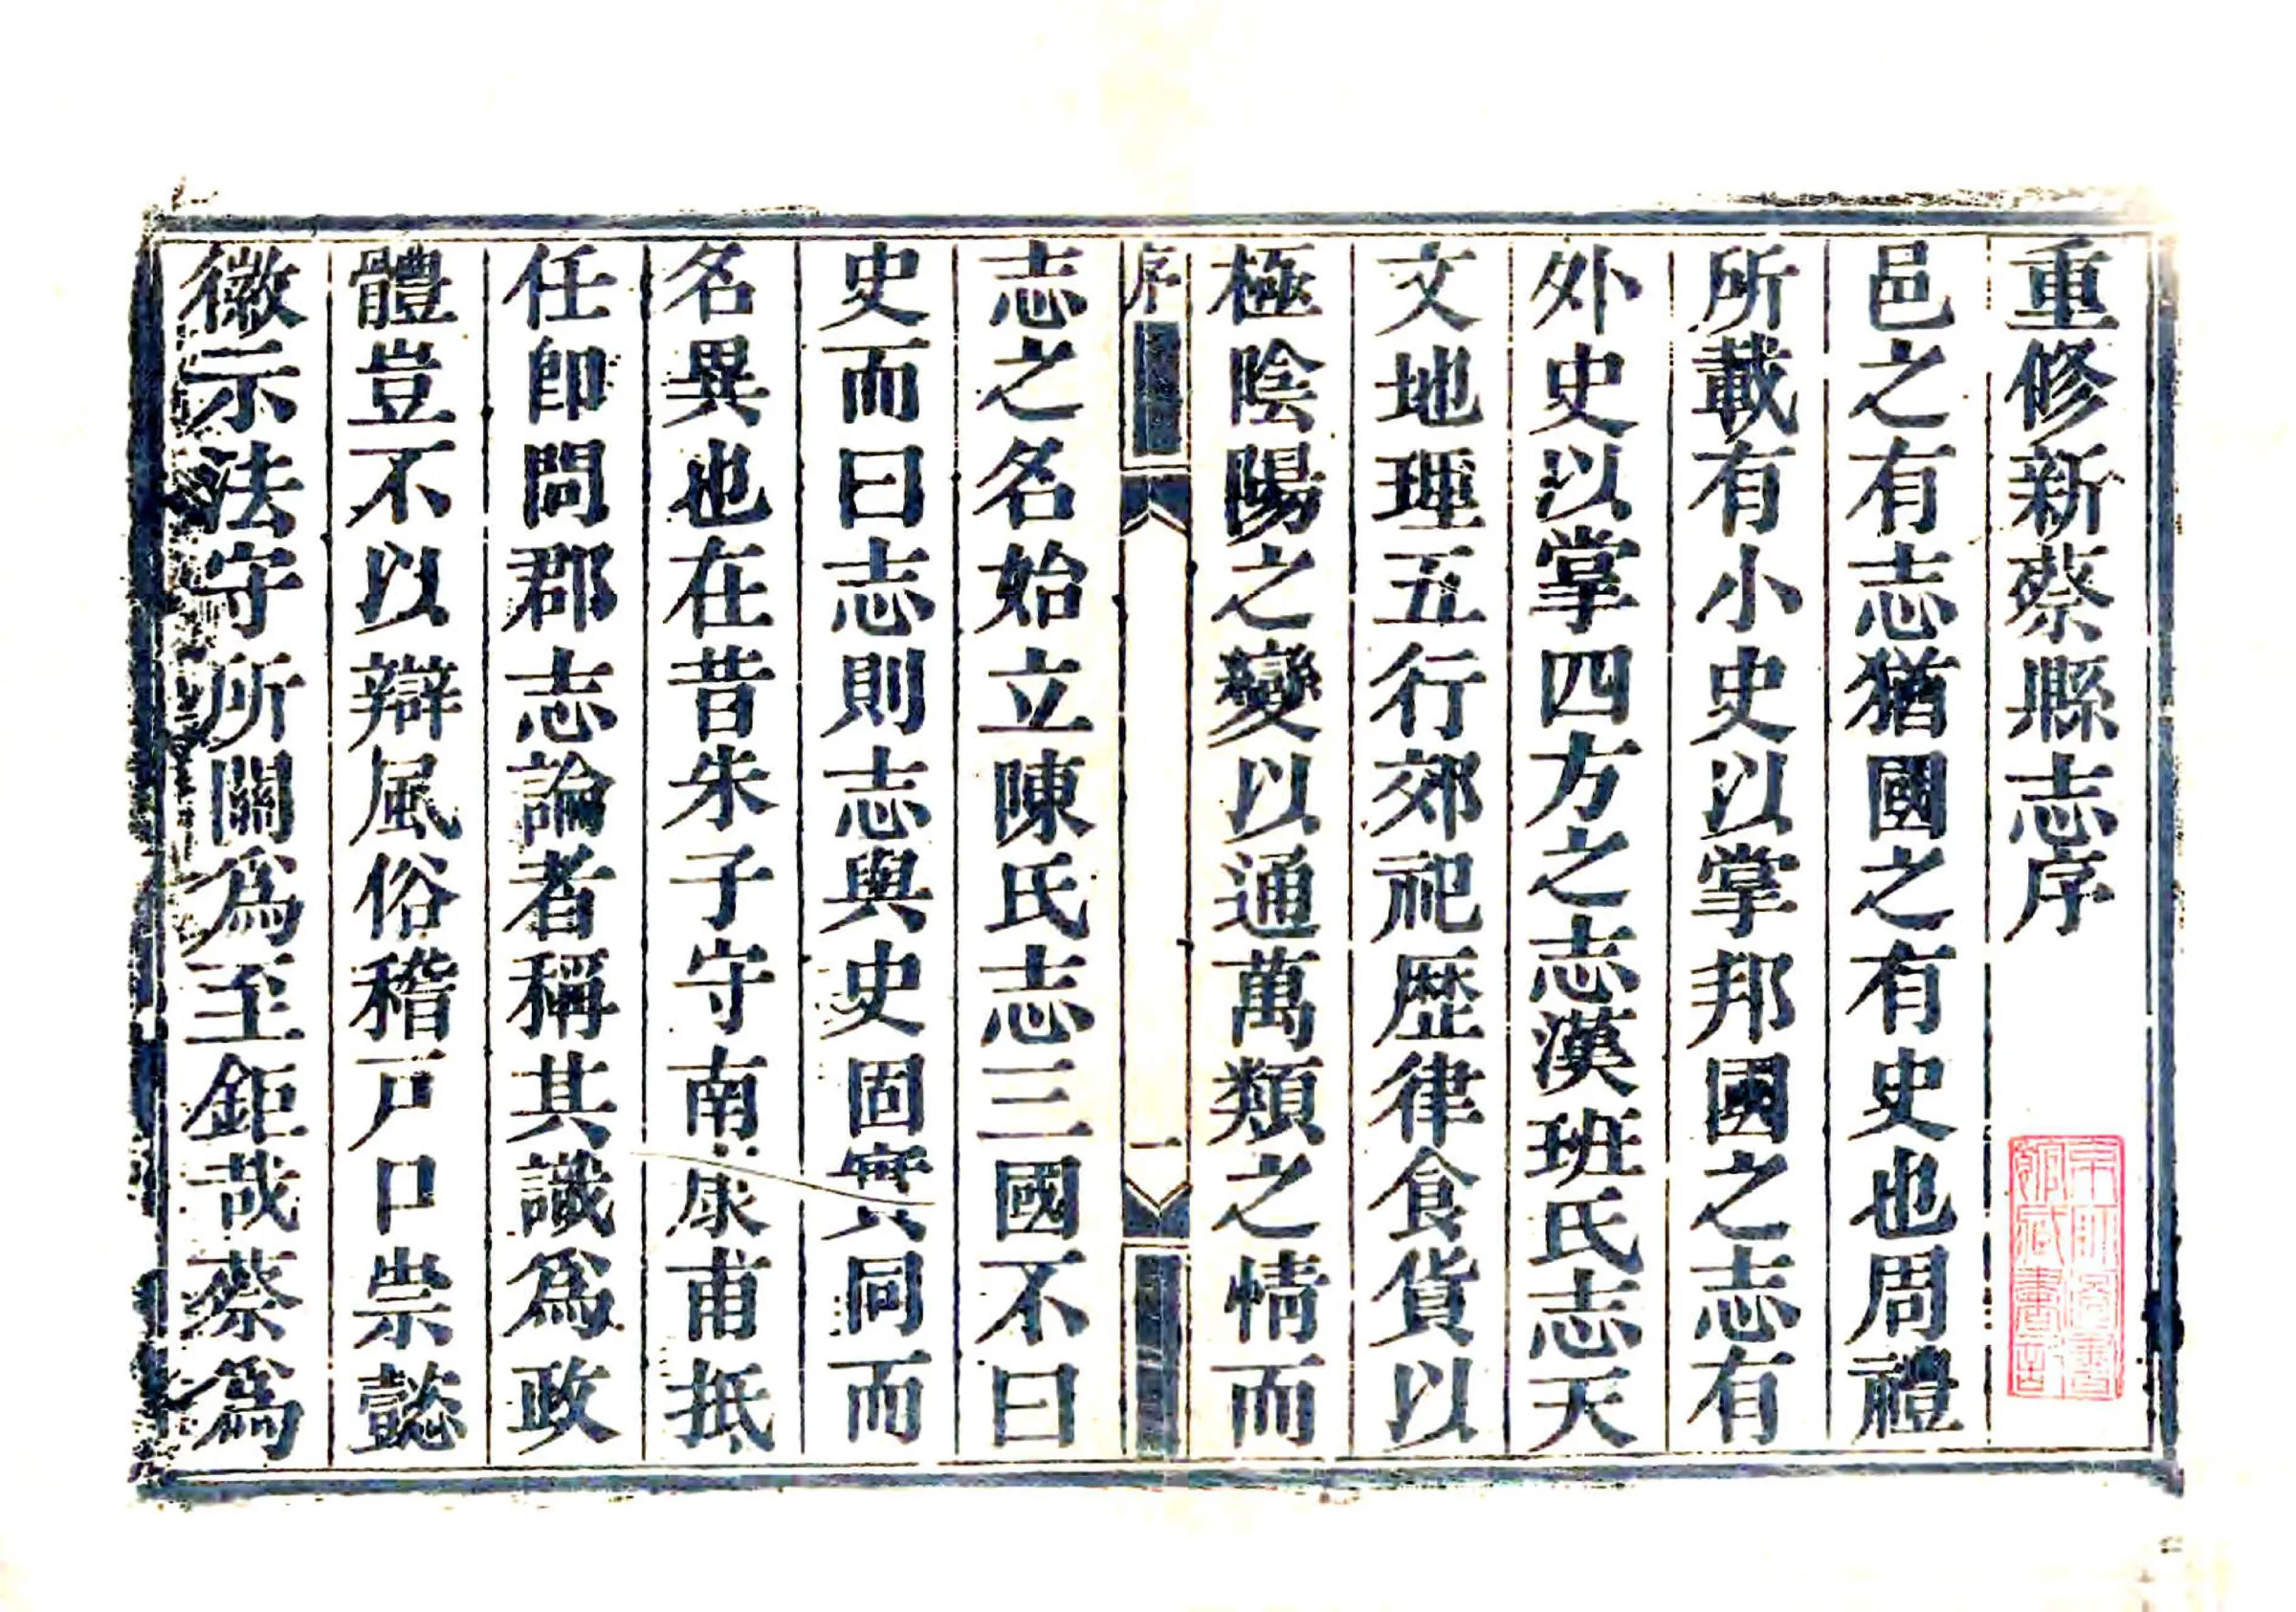 重修新蔡縣志序
邑之有志猶國之有史也周禮
所載有小史以掌邦國之志有
外史以掌四方之志漢班氏志天
文地理五行郊祀歷律食貨以
極陰陽之變以通萬類之情而
序
一
志之名始立陳氏志三國不曰
史而曰志則志與史固實同而
名異也在昔朱子守南康甫抵
任卽問郡志論者稱其識爲政
體豈不以辯風俗稽戸口祟懿
徽示法守所關爲至鉅哉蔡爲